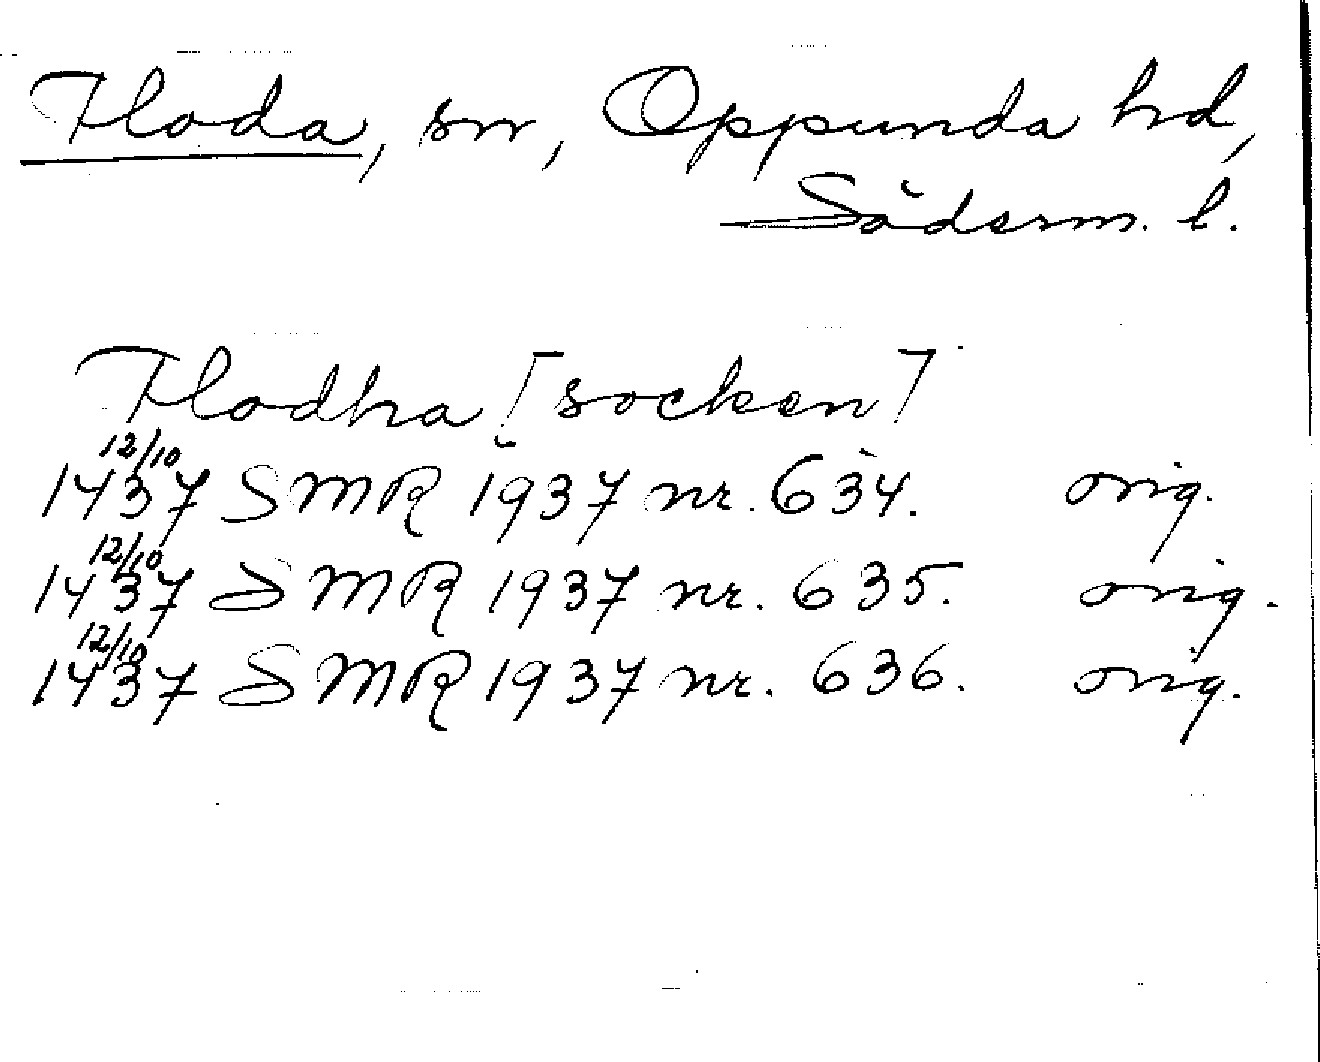 Floda, sn, Oppunda hd,
Söderm. l.
Flodha [socken]
12/10
1437 SMR 1937 nr. 634. orig.
12/10
1437 SMR 1937 nr. 635. orig.
12/10
1437 SMR 1937 nr. 636. orig.